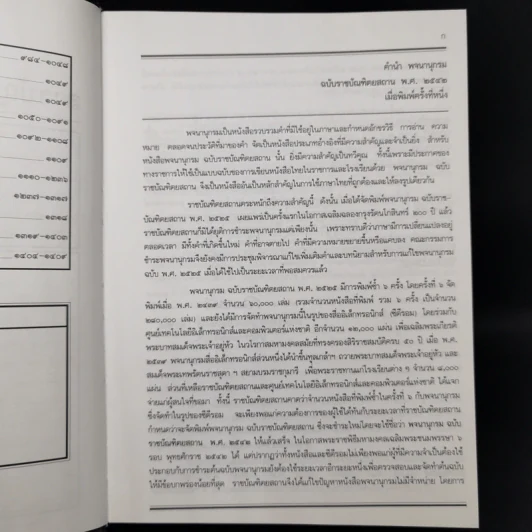 ๙๘๔-๑๐๔๘
๑๐๔๙
๑๐๔๙
๑๐๕๐-๑๐๙๑
๑๐๙๒-๑๑๐๘
๑๑๐๙
๑๑๑๐-๑๒๓๖
๑๒๓๗-๑๓๑๗
๑๓๑๘
๑๓๑๙-๑๔๐๓
๑๔๐๔-๑๔๐๙
คำนำ พจนานุกรม
ฉบับราชบัณฑิตยสถาน พ.ศ. ๒๕๔๒
เมื่อพิมพ์ครั้งที่หนึ่ง
พจนานุกรมเป็นหนังสือรวบรวมคำที่มีใช้อยู่ในภาษาและกำหนดอักขรวิธี การอ่าน ความ
หมาย ตลอดจนประวัติที่มาของคำ จัดเป็นหนังสือประเภทอ้างอิงที่มีความสำคัญและจำเป็นยิ่ง สำหรับ
หนังสือพจนานุกรม ฉบับราชบัณฑิตยสถาน นั้น ยิ่งมีความสำคัญเป็นทวีคูณ ทั้งนี้เพราะมีประกาศของ
ทางราชการให้ใช้เป็นแบบฉบับของการเขียนหนังสือไทยในราชการและโรงเรียนด้วย พจนานุกรม ฉบับ
ราชบัณฑิตยสถาน จึงเป็นหนังสืออันเป็นหลักสำคัญในการใช้ภาษาไทยที่ถูกต้องและให้ลงรูปเดียวกัน
ราชบัณฑิตยสถานตระหนักถึงความสำคัญนี้ ดังนั้น เมื่อได้จัดพิมพ์พจนานุกรม ฉบับราช-
บัณฑิตยสถาน พ.ศ. ๒๕๒๕ เผยแพร่เป็นครั้งแรกในโอกาสเฉลิมฉลองกรุงรัตนโกสินทร์ ๒๐๐ ปี แล้ว
ราชบัณฑิตยสถานก็มิได้ยุติการชำระพจนานุกรมแต่เพียงนั้น เพราะทราบดีว่าภาษามีการเปลี่ยนแปลงอยู่
ตลอดเวลา มีทั้งคำที่เกิดขึ้นใหม่ คำที่อาจตายไป คำที่มีความหมายขยายขึ้นหรือแคบลง คณะกรรมการ
ชำระพจนานุกรมจึงยังคงมีการประชุมพิจารณาแก้ไขเพิ่มเติมคำและบทนิยามสำหรับการแก้ไขพจนานุกรม
ฉบับ พ.ศ. ๒๕๒๕ เมื่อได้ใช้ไปเป็นระยะเวลาที่พอสมควรแล้ว
พจนานุกรม ฉบับราชบัณฑิตยสถาน พ.ศ. ๒๕๒๕ มีการพิมพ์ซ้ำ ๖ ครั้ง โดยครั้งที่ ๖ จัด
พิมพ์เมื่อ พ.ศ. ๒๕๓๙ จำนวน ๖๐,๐๐๐ เล่ม (รวมจำนวนหนังสือที่พิมพ์ รวม ๖ ครั้ง เป็นจำนวน
๒๘๐,๐๐๐ เล่ม) และยังได้มีการจัดทำพจนานุกรมนี้ในรูปของสื่ออิเล็กทรอนิกส์ (ซีดีรอม) โดยร่วมกับ
ศูนย์เทคโนโลยีอิเล็กทรอนิกส์และคอมพิวเตอร์แห่งชาติ อีกจำนวน ๑๒,๐๐๐ แผ่น เพื่อเฉลิมพระเกียรติ
พระบาทสมเด็จพระเจ้าอยู่หัว ในวโรกาสมหามงคลสมัยที่ทรงครองสิริราชสมบัติครบ ๕๐ ปี เมื่อ พ.ศ.
๒๕๓๙ พจนานุกรมสื่ออิเล็กทรอนิกส์ส่วนหนึ่งได้นำขึ้นทูลเกล้าฯ ถวายพระบาทสมเด็จพระเจ้าอยู่หัว และ
สมเด็จพระเทพรัตนราชสุดา ฯ สยามบรมราชกุมารี เพื่อพระราชทานแก่โรงเรียนต่าง ๆ จำนวน ๔,๐๐๐
แผ่น ส่วนที่เหลือราชบัณฑิตยสถานและศูนย์เทคโนโลยีอิเล็กทรอนิกส์และคอมพิวเตอร์แห่งชาติ ได้แจก
จ่ายแก่ผู้สนใจที่ขอมา ทั้งนี้ ราชบัณฑิตยสถานคาดว่าจำนวนหนังสือที่พิมพ์ซ้ำในครั้งที่ ๖ กับพจนานุกรม
ซึ่งจัดทำในรูปของซีดีรอม จะเพียงพอแก่ความต้องการของผู้ใช้ได้ทันกับระยะเวลาที่ราชบัณฑิตยสถาน
กำหนดว่าจะจัดพิมพ์พจนานุกรม ฉบับราชบัณฑิตยสถาน ซึ่งจะชำระใหม่โดยจะใช้ชื่อว่า พจนานุกรม ฉบับ
ราชบัณฑิตยสถาน พ.ศ. ๒๕๔๒ ให้แล้วเสร็จ ในโอกาสพระราชพิธีมหามงคลเฉลิมพระชนมพรรษา ๖
รอบ พุทธศักราช ๒๕๔๒ ได้ แต่ปรากฏว่าทั้งหนังสือและซีดีรอมไม่เพียงพอแก่ผู้ที่มีความจำเป็นต้องใช้
ประกอบกับการชำระต้นฉบับพจนานุกรมยังต้องใช้ระยะเวลาอีกระยะหนึ่งเพื่อตรวจสอบและจัดทำต้นฉบับ
ให้มีข้อบกพร่องน้อยที่สุด ราชบัณฑิตยสถานจึงได้แก้ไขปัญหาหนังสือพจนานุกรมไม่มีจำหน่าย โดยการ